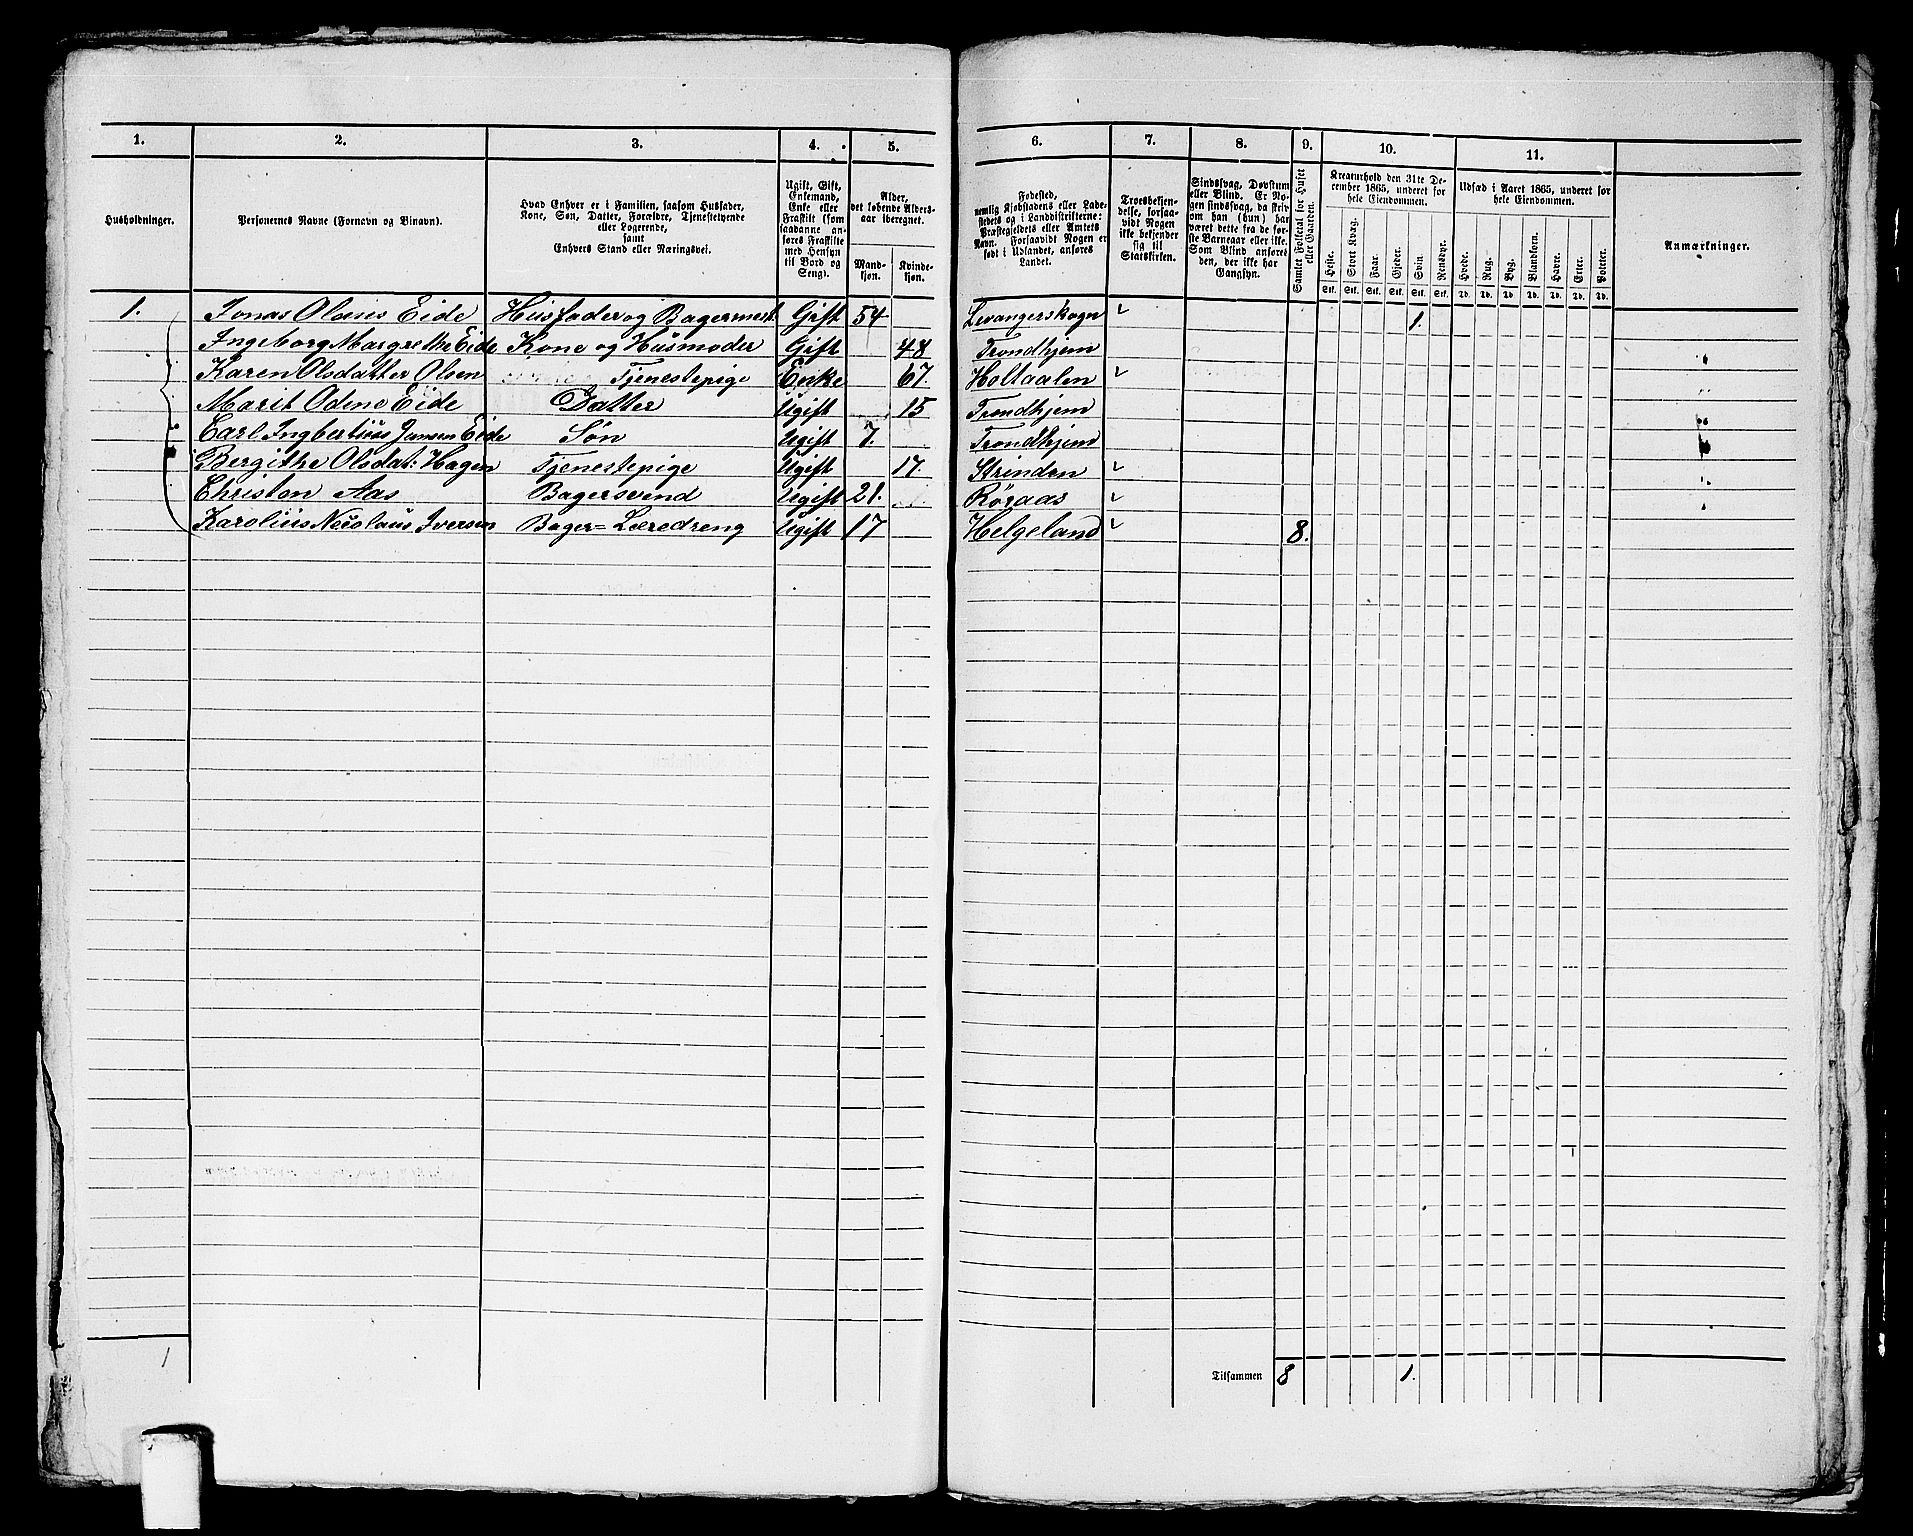 1. 2. 3. 4. 5. 6. 7. 8. 9. 10. 11.
Husholdninger.
Personernes Navne (Fornavn og Binavn).
Hvad Enhver er i Familien, saasom Husfader,
Kone, Søn, Datter, Forældre, Tjenestetyende
eller Logerende,
samt
Enhvers Stand eller Næringsvei.
Ugift, Gift,
Enkemand,
Enke eller
Fraskilt (som
saadanne an-
føres Fraskilte
med Hensyn
til Bord og
Seng).
Alder,
det løbende Alders-
aar iberegnet.
Mand-
kjøn.
Kvinde-
kjøn.
Fødested,
nemlig Kjøbstadens eller Lade-
stedets og i Landdistrikterne:
Præstegjeldets eller Amtets
Navn. Forsaavidt Nogen er
født i Udlandet, anføres
Landet.
Troesbekjen-
delse, forsaa-
vidt Nogen
ikke bekjender
sig til
Statskirken.
Sindssvag, Døvstum
eller Blind. Er No-
gen sindssvag, da skriv
om han (hun) har
været dette fra de før-
ste Barneaar eller ikke.
Som Blind anføres
den, der ikke har
Gangsyn.
Samlet Folketal for Huset
eller Gaarden.
Kreaturhold den 31te De-
cember 1865, underet for
hele Eiendommen.
Heste. Stort Kvæg. Faar. Gjeder. Svin. Rensdyr.
Stk. Stk. Stk. Stk. Stk. Stk.
Udsæd i Aaret 1865, underet for
hele Eiendommen.
Hvede. Rug. Byg. Blandkorn. Havre. Erter. Poteter.
Td. Td. Td. Td. Td. Td. Td.
Anmærkninger.
1. Jonas Olaus Eide Husfader og Bagermest. Gift 54 Levangerskogn 1.
Ingeborg Margrethe Eide Kone og Husmoder Gift 48 Trondhjem
Karen Olsdatter Olsen Tjenestepige Enke 67. Holtaalen
Marit Odene Eide Datter Ugift 15 Trondhjem
Carl Ingbertius Jansen Eide Søn Ugift 7. Trondhjem
Bergithe Olsdat: Hagen Tjenestepige Ugift 17. Strinden
Christen Aas Bagersvend Ugift 21. Röraas
Karolius Neiolaus Iversen Bager= Læredreng Ugift 17 Helgeland 8.
1
Tilsammen 8 1.